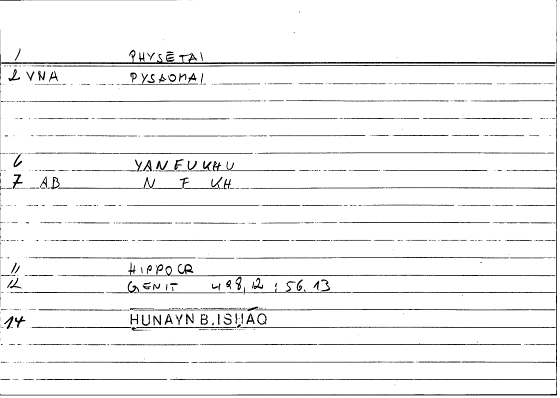 1 PHYSĒTAI
2 VNA PYSAOMAI
6 YANFUKHU
7 AB N F KH
11 HIPPOCR
12 GENIT 498,12 : 56.13
14 HUNAYN B. ISḤĀQ